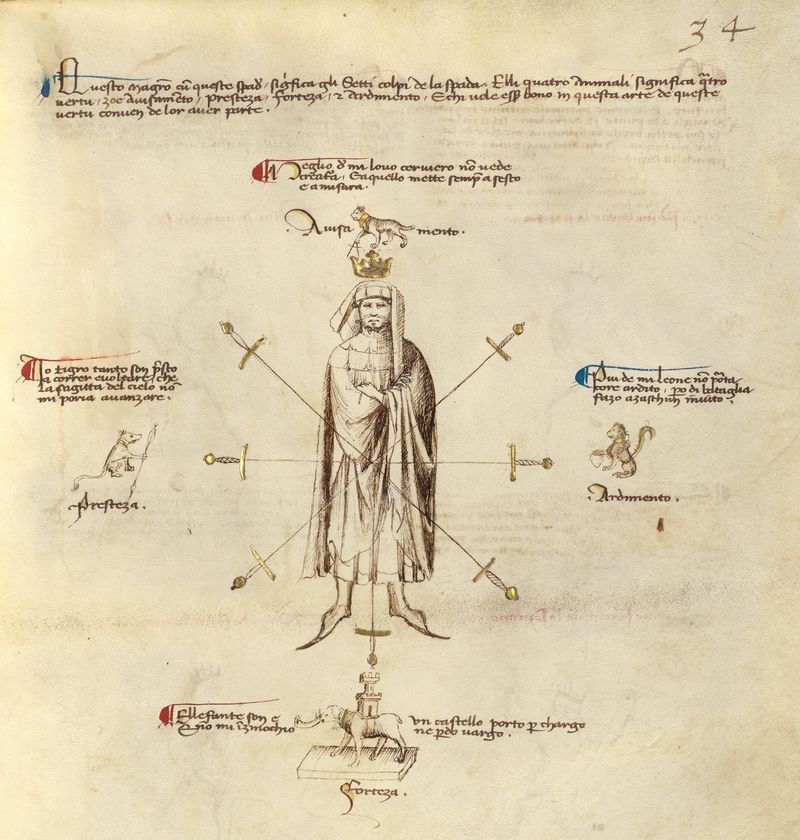 34
Questo magro cū queste spade significa gli Setti colpi de la spada. Elli quatro animali significa q̄tro
vertu, zoe Avisamēto, presteza, forteza, z Ardimento, E chi vole ess̄ bono in questa arte de queste
vertu conven de lor aver parte.
Meglio d̄ mi lovo cerviero nō vede
creatūra, E aquello mette semp̄ a sesto
e a misura.
Avisamento.
Io tigro tanto son p̄sto
a correr e voltare, che
la sagitta del cielo nō
mi poria avanzare.
Piu de mi leone nō porta
core ardito, pō di bataglia
fazo azaschun invito.
Presteza.
Ardimento.
Ellefante son e un castello porto p chargo
E nō mi īzinochio ne p̄do vargo.
Forteza.